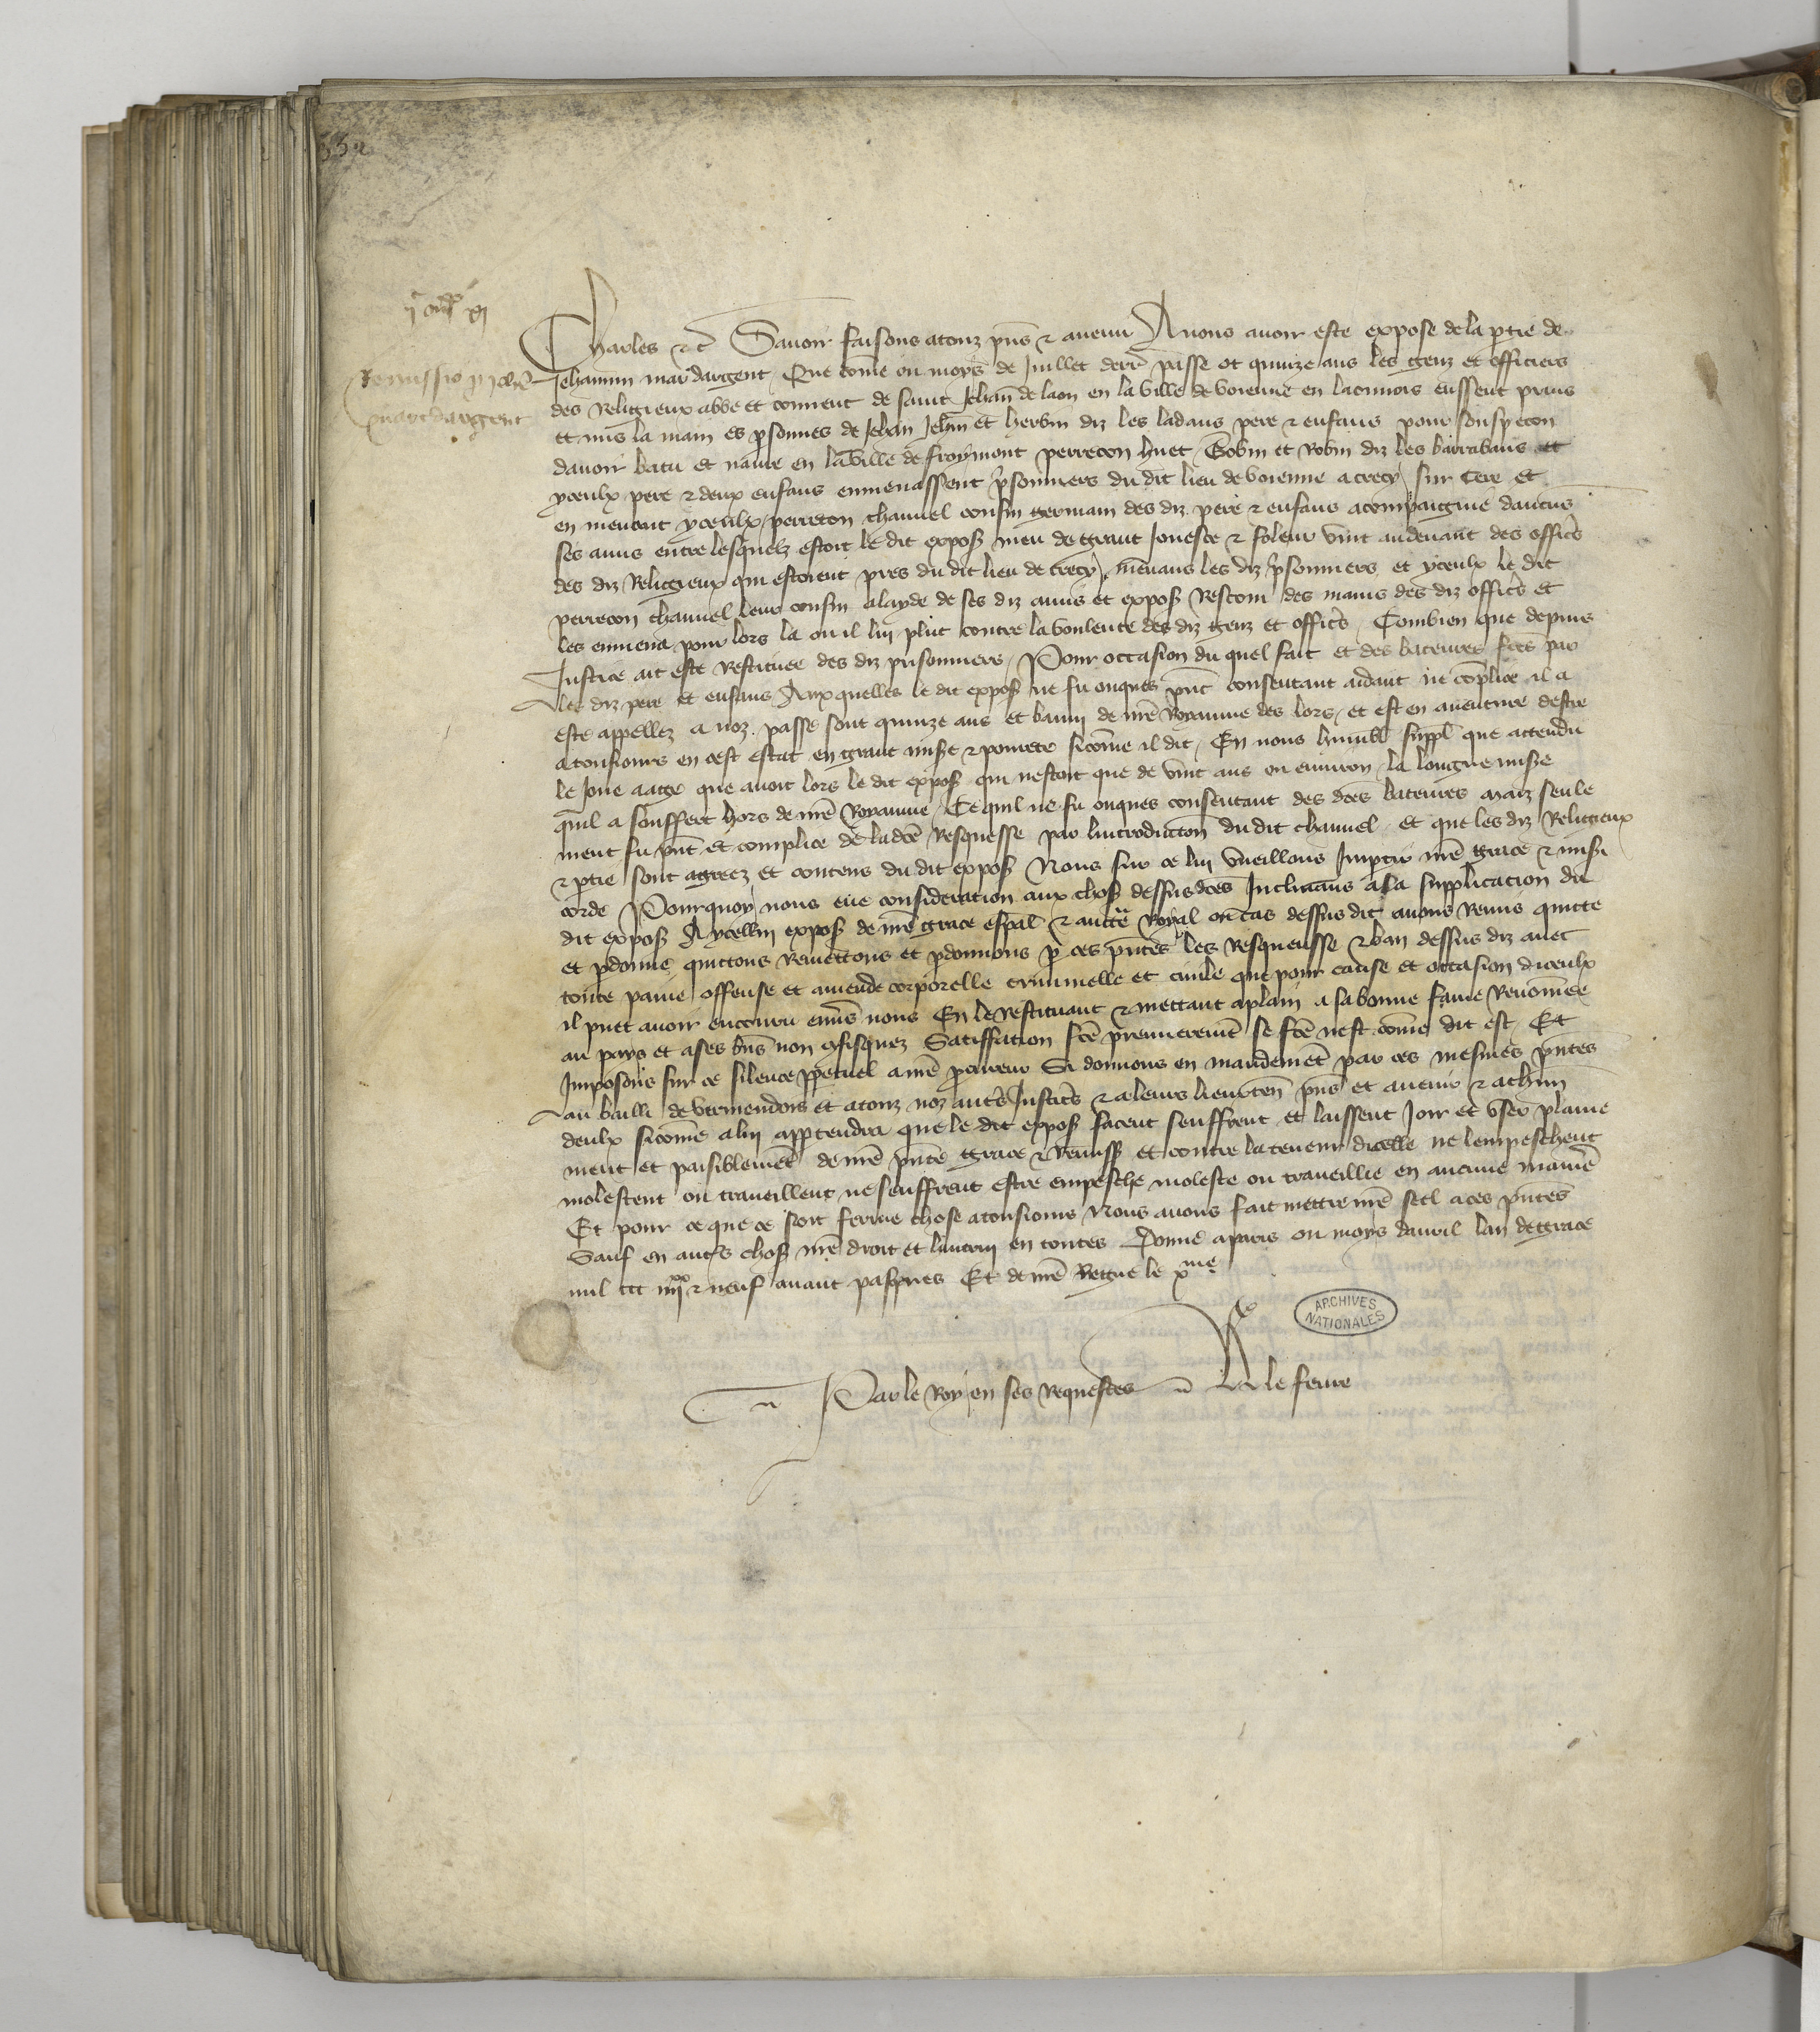 Charles &c Savoir faisons a touz pns & avenir A nous avoir este expose de la ptie de
Remissio p Jehanno
marc dargent
Jehannin marc dargent Que come ou moys de Juillet derr passe ot quinze ans les genz et officiers
des Religieux abbe et couvent de saint Jehan de laon en la ville de voienne en laonnois eussent prins
et mis la main es psonnes de Jehan Jehn et herbin diz les ladans pere & enfans pour souspecon
davoir batu et navre en la ville de froymont perrecon huet Gobin et Robin diz les barrabans et
yceulx pere & deux enfans emmenassent psonniers du dit lieu de voienne a crecy sur Cere et
en menant yceulx perrecon chauvel cousin germain des diz pere & enfans acompaignie dautres
ses amis entre lesquelz estoit le dit expos meu de grant Jonesce & foleur vint au devant des offics
des diz Religieux qui estoient pres du dit lieu de crecy menans les diz psonniers et yceulx le dit
perrecon chauvel leur cousin a layde de ses diz amis et expos Rescout des mains des diz offics et
les enmena pour lors la ou il lui plut contre la voulente des diz genz et offics Combien que depuis
Justice ait este Restituee des diz prisonniers Pour occasion du quel fait et des bateures fces par
les diz pere et enfans Aux quelles le dit expos ne fu onques pnt consentant aidant ne complice il a
este appellez a noz passe sont quinze ans et banni de nre Royaume des lors et est en aventure destre
a tousiours en cest estat en grant mise & povrete sicome il dit En nous humbl suppl que attendu
le Jone aage que avoit lors le dit expos qui nestoit que de vint ans ou environ la longue mise
quil a souffert hors de nre Royaume Ce quil ne fu onques consentant des dces bateures maiz seule
ment fu pnt et complice de la dce Resquesse par lintroduction du dit chauvel et que les diz Religieux
& ptie sont agreez et contens du dit expos Nous sur ce lui vueillons Impartir nre grace & mise
corde Pourquoy nous eue consideration aux chos dessusdces Inclinans a la supplication du
dit expos A ycellui expos de nre grace espal & auctte Royal ou cas dessus dit avons Remis quitte
et pdonne quittons Remettons et pdonnons p ces pntes les Resqueusse & ban dessus diz avec
toute paine offense et amende corporelle criminelle et civile que pour cause et occasion diceulx
il puet avoir encouru envs nous En le restituant & mettant a plain a sa bonne fame Renomee
au pays et a ses bns non cfisquez Satisffation fce premieremt se fce nest come dit est Et
Imposons sur ce silence ppetuel a nre pcureur Si donnons en mandement par ces mesmes pntes
au bailli de vermendois et a touz noz autrs Justicrs & a leurs lieuxten pns et avenir & a chun
deulx sicome a lui apptendra que le dit expos facent seuffrent et laissent Joir et user plaine
ment et paisiblement de nre pnte grace & remiss et contre la teneur dicelle ne lempeschent
molestent ou traveillent ne seuffrent estre empesche moleste ou traveillie en aucune maniere
Et pour ce que ce soit ferme chose a tousiours Nous avons fait mettre nre seel a ces pntes
Sauf en autrs chos nre droit et lautrui en toutes Donne a paris ou moys davril lan de grace
mil ccc iiijxx & neuf avant pasques Et de nre Regne le xme
ARCHIVES
NATIONALES
Par le Roy en ses Requestes le fevre